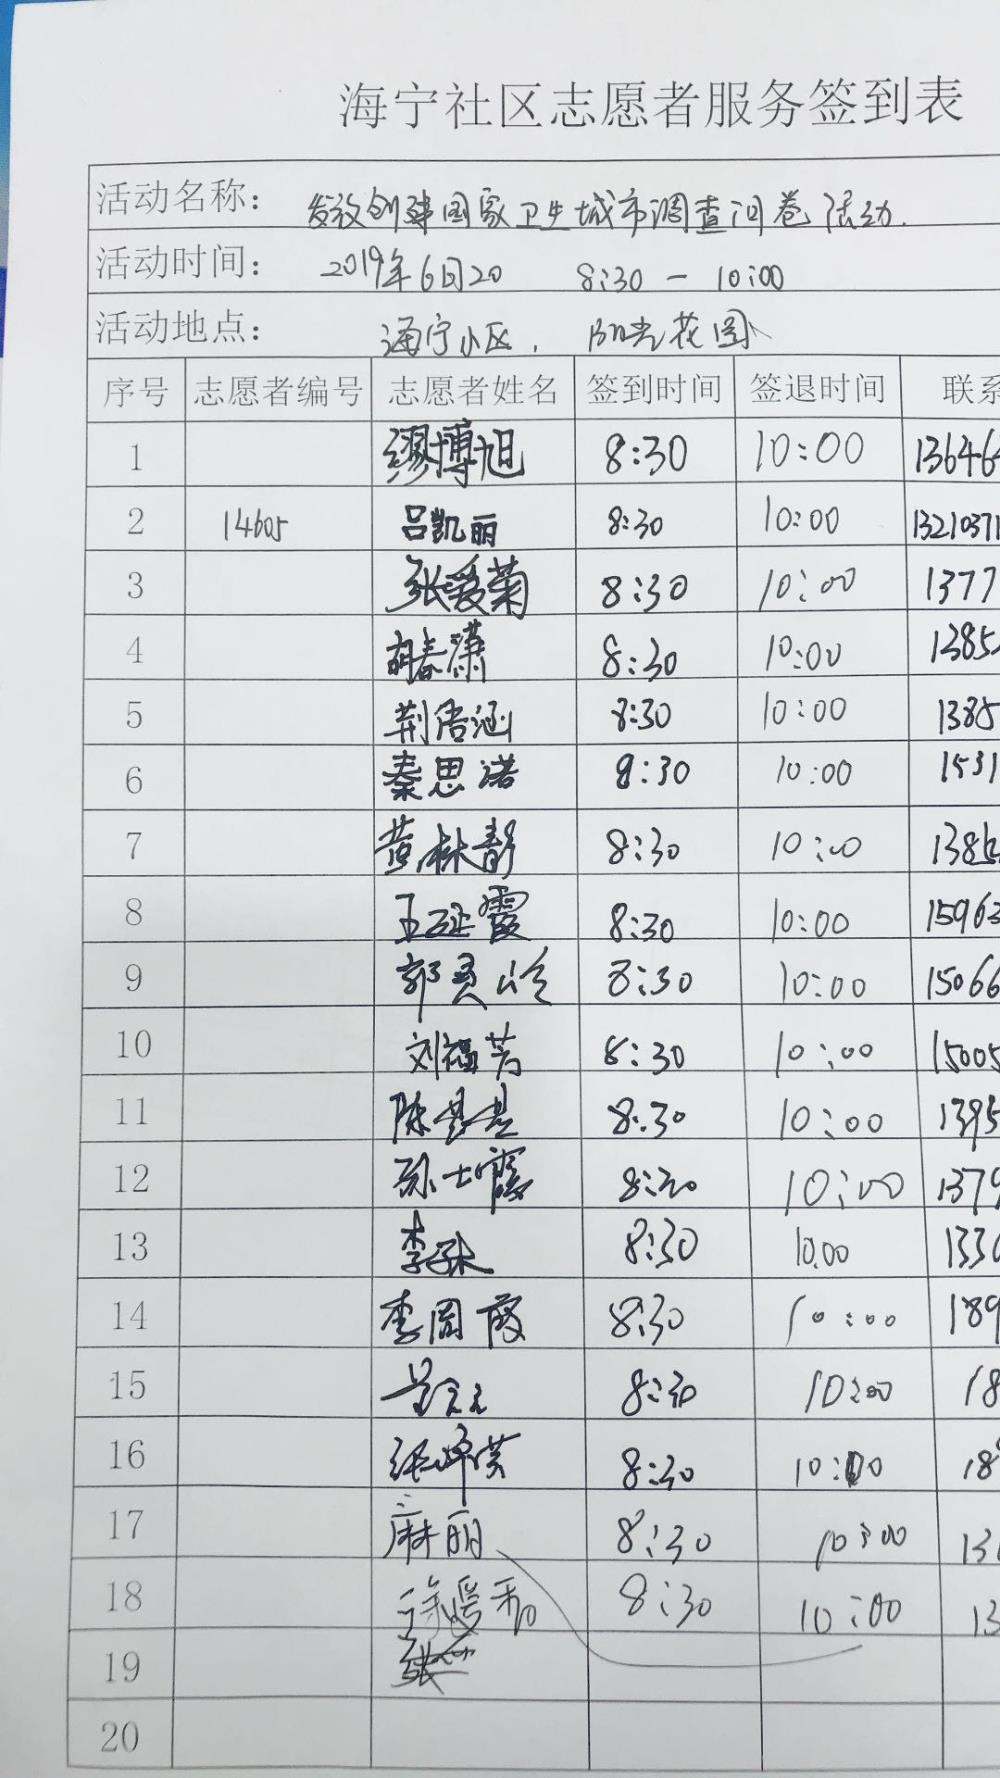 海宁社区志愿者服务签到表
活动名称: 发放创建国家卫生城市调查问卷活动.
活动时间: 2019年6日20 8:30 — 10:00
活动地点: 海宁小区, 阳光花园
序号 志愿者编号 志愿者姓名 签到时间 签退时间 联系
1 缪博旭 8:30 10:00 13646
2 14605 吕凯丽 8:30 10:00 13210371
3 张爱菊 8:30 10:00 1377
4 胡春潇 8:30 10:00 1385
5 荆语涵 8:30 10:00 1385
6 秦思诺 8:30 10:00 1531
7 黄林静 8:30 10:00 1385
8 王延霞 8:30 10:00 15963
9 郭灵玲 8:30 10:00 15066
10 刘福芳 8:30 10:00 15005
11 陈 8:30 10:00 1395
12 孙士霞 8:30 10:00 1379
13 李 8:30 10.00 1330
14 李周霞 8:30 10:00 189
15 8:30 10:00 18
16 张峰 8:30 10:00 18
17 麻丽 8:30 10:00 13
18 徐爱和 8:30 10:00 13
19 张
20